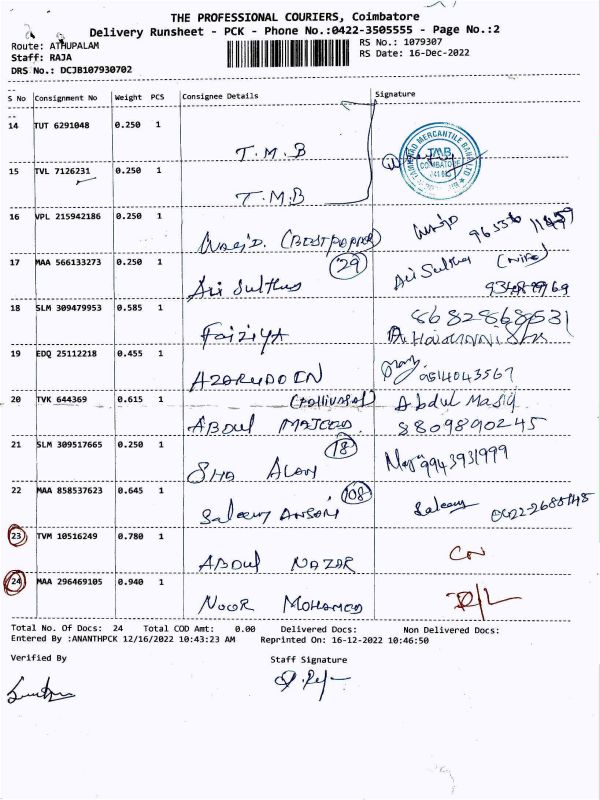 THE PROFESSIONAL COURIERS, Coimbatore
Delivery Runsheet - PCK - Phone No.:0422-3505555 - Page No.:2
Route: ATHUPALAM
RS No.: 1079307
Staff: RAJA
RS Date: 16-Dec-2022
DRS No.: DCJB107930702
S No Consignment No Weight PCS Consignee Details Signature
14 TUT 6291048 0.250 1 T.M.B
15 TVL 7126231 0.250 1 T.M.B
TMB
COIMBATORE
16 VPL 215942186 0.250 1 (BESTPOPPER)
17 MAA 566133273 0.250 1 29 (Wife)
18 SLM 309479953 0.585 1 FAIZIYA
19 EDQ 25112218 0.455 1 AZARUDDEEN
20 TVK 644369 0.615 1 ABDUL MAJEED Abdul 8809890245
21 SLM 309517665 0.250 1 18 SHA ALAM 9943931999
22 MAA 858537623 0.645 1 108 Saleem ANSARI Saleem
23 TVM 10516249 0.780 1 ABDUL NAZAR CN
24 MAA 296469105 0.940 1 NOOR MOHAMED
Total No. Of Docs: 24 Total COD Amt: 0.00 Delivered Docs: Non Delivered Docs:
Entered By :ANANTHPCK 12/16/2022 10:43:23 AM Reprinted On: 16-12-2022 10:46:50
Verified By Staff Signature